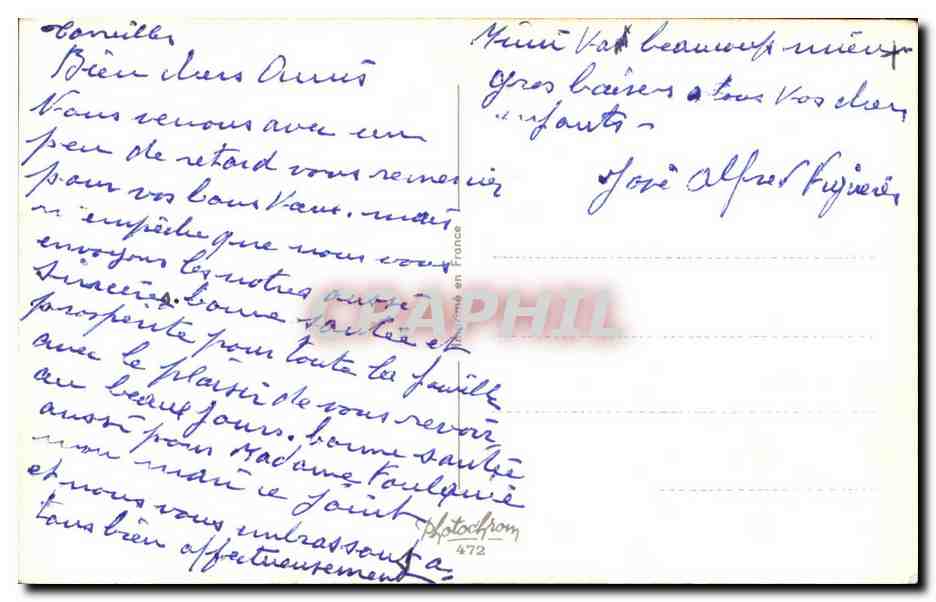 Bien chers Amis
Nous venons avec un
peu de retard vous remercier
pour vos bons Vœux. mais
n'empêche que nous vous
envoyons les notres aussi
sincères. bonne santée et
prosperite pour toute la famille
avec le plaisir de vous revoir
au beaux jours. bonne santée
aussi pour Madame Foulquié
mon mari ce joint
et nous vous embrassons a
tous bien affectueusement
Mimi Va beaucoup mieux
gros baisers a tous Vos chers
enfants -
José Alfred Figuères
Imprimé en France
CRAPHIL
Photochrom
472